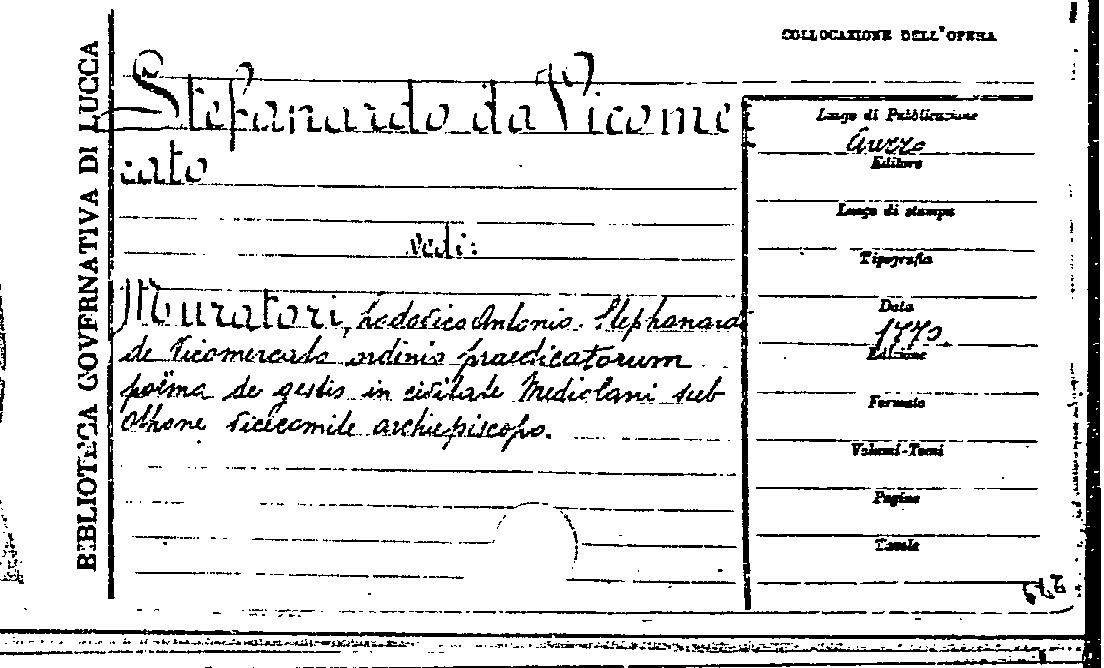 COLLOCAZIONE DELL'OPERA
BIBLIOTECA GOVERNATIVA DI LUCCA
Stefanardo da Vicomer
cato
Vedi:
Muratori, Lodovico Antonio. Stephanardi
de Vicomercato ordinis praedicatorum
poëma de gestis in civitate Mediolani sub
Othone Vicecomite archiepiscopo.
Luogo di Pubblicazione
Arezzo
Editore
Luogo di stampa
Tipografia
Data
1770.
Edizione
Formato
Volumi-Tomi
Pagine
Tavole